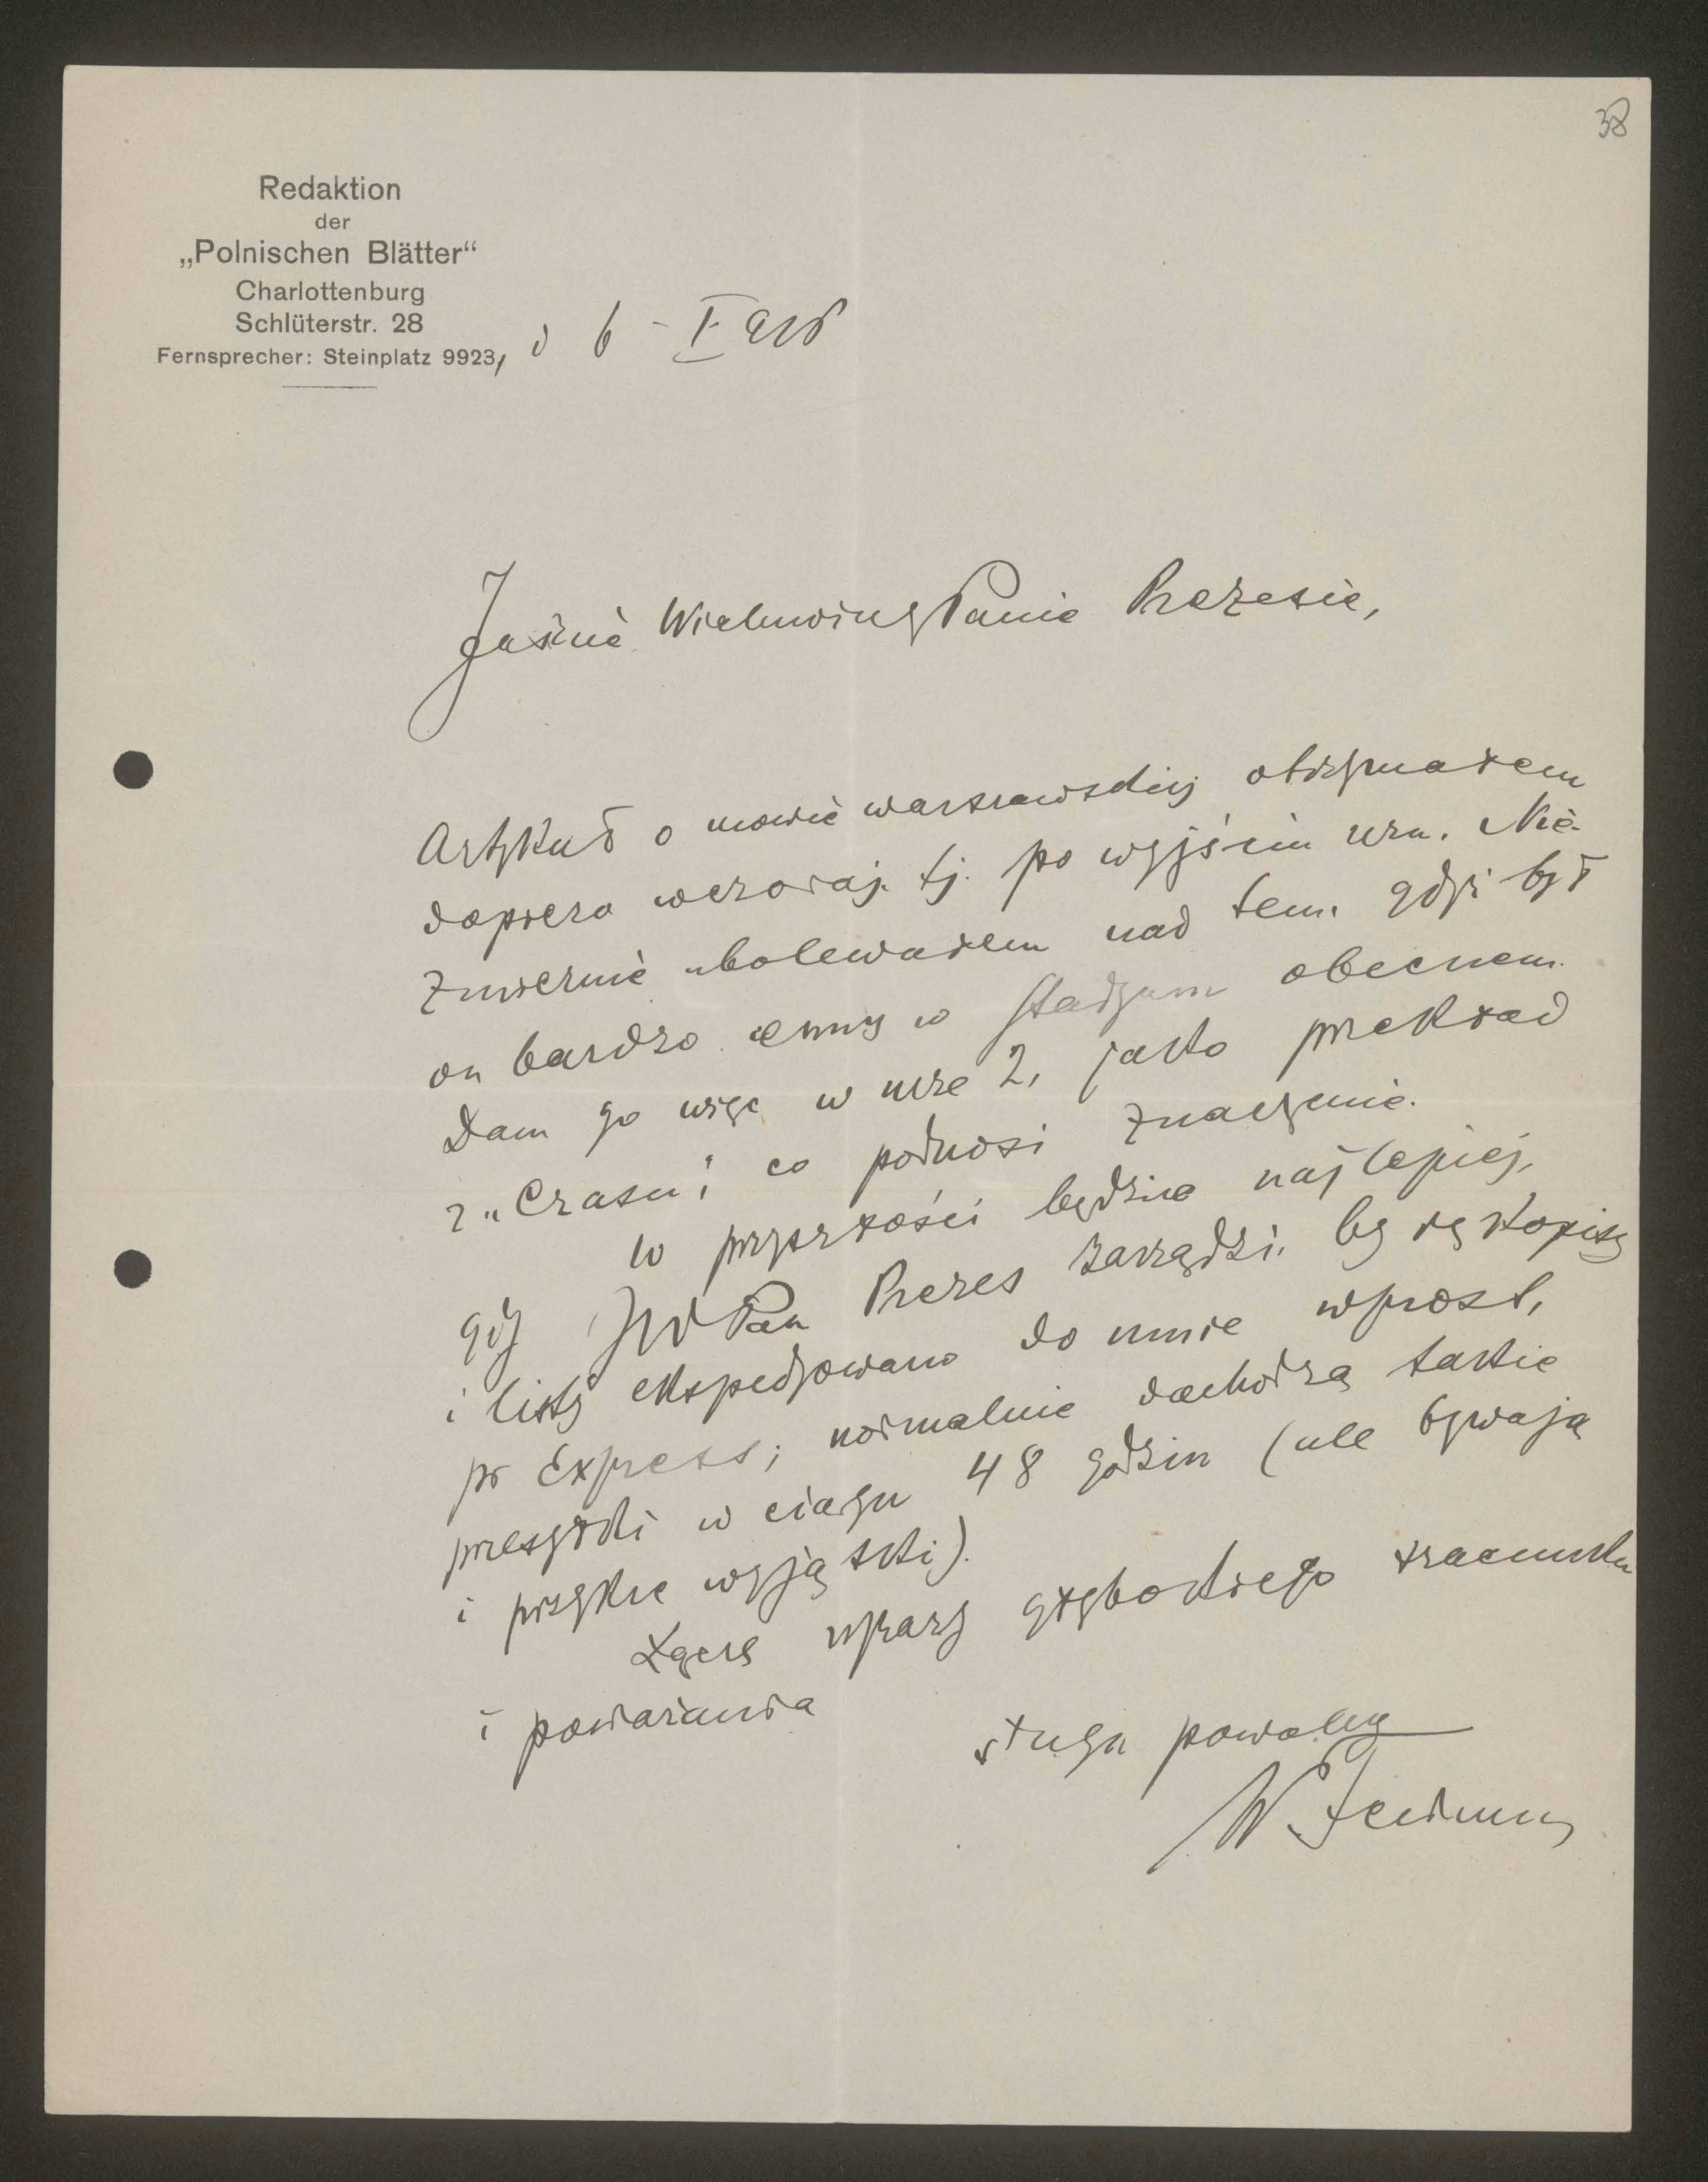 38
Redaktion
der
„Polnischen Blätter“
Charlottenburg
Schlüterstr. 28
Fernsprecher: Steinplatz 9923, d 6 - I 916
Jaśnie Wielmożny Panie Prezesie,
Artykuł o mowie warszawskiej otrzymałem
dopiero wczoraj. tj. po wyjściu nru. Nie-
zmiernie ubolewałem nad tem. gdyż był
on bardzo cenny w stadyum obecnem.
Dam go więc w nrze 2, jako przekład
z „Czasu“, co podnosi znaczenie.
W przyszłości będzie najlepiej,
gdy JWPan Prezes zarządzi, by rękopisy
i listy ekspedyowano do mnie wprost,
pr Express; normalnie dochodzą takie
przesyłki w ciągu 48 godzin (ale bywają
i przykre wyjątki).
Łączę wyrazy głębokiego szacunku
i poważania
sługa powolny
W. Feldman